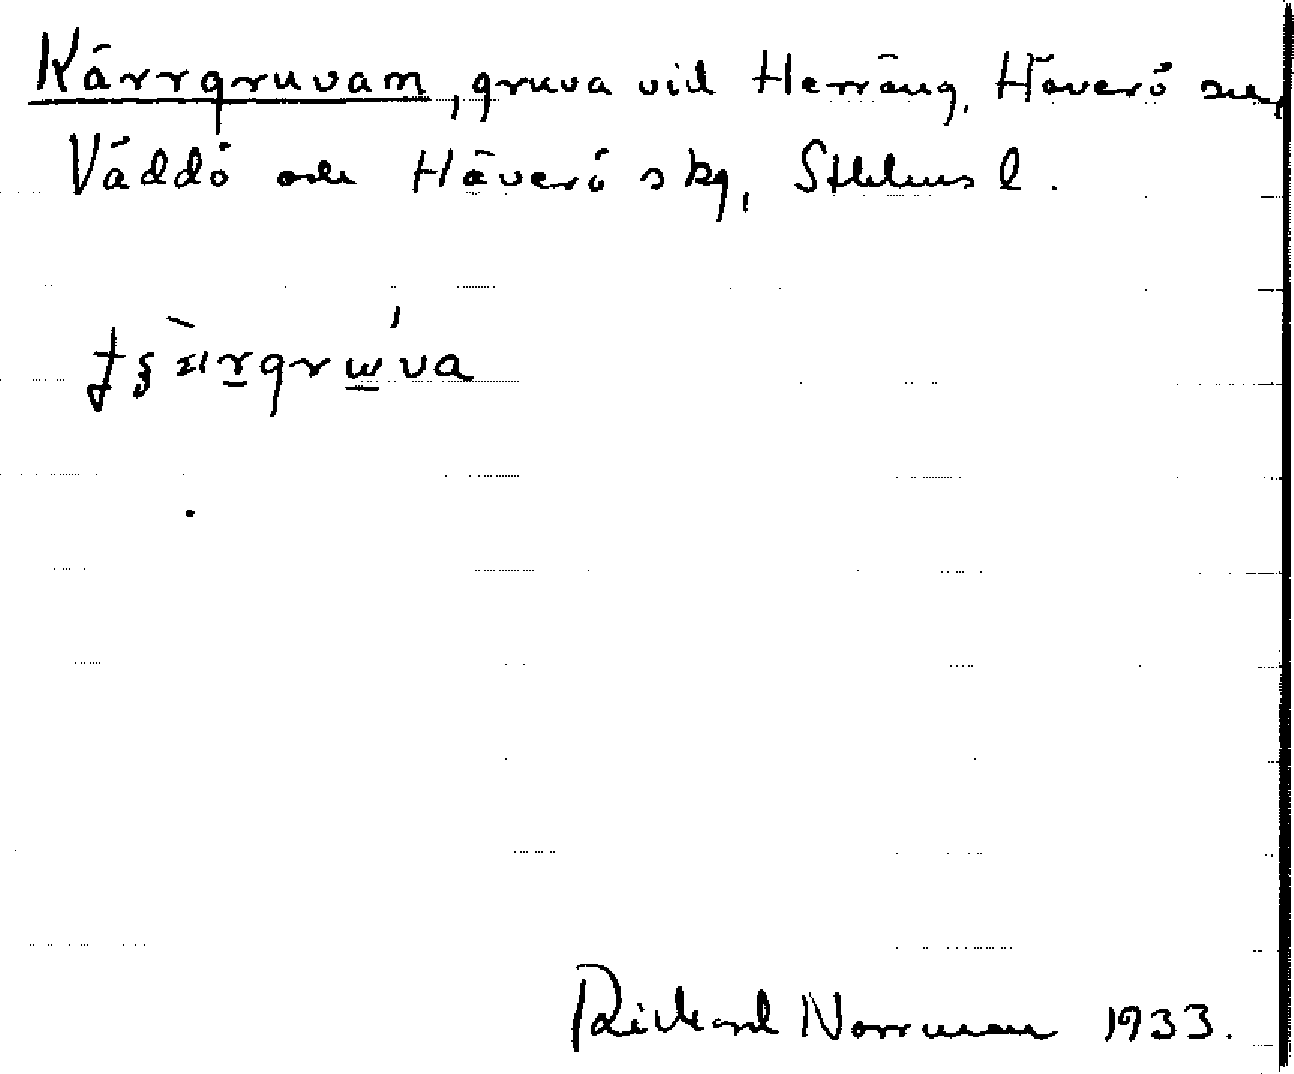 Kärrgruvan, gruva vid Herräng, Häverö sn,
Väddö och Häverö skg, Sthlms l.
Rickard Norrman 1933.